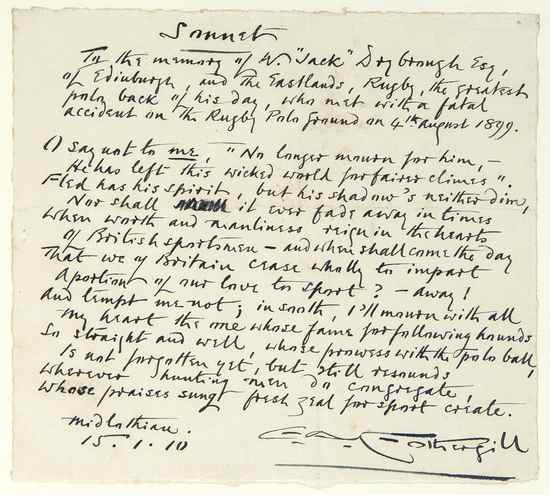 Sonnet
To the memory of W. "Jack" Drybrough Esq,
of Edinburgh, and the Eastlands, Rugby, the greatest
polo back of his day, who met with a fatal
accident on the Rugby Polo Ground on 4th august 1899.
O say not to me, "No longer mourn for him, –
He has left this wicked world for fairer climes".
Fled has his spirit, but his shadow's neither dim,
Nor shall it ever fade away in times
When worth and manliness reign in the hearts
of British sportsmen – and when shall come the day
That we of Britain cease wholly to impart
A portion of our love to sport? – away!
and tempt me not; in sooth, I'll mourn with all
my heart the one whose fame for following hounds
So straight and well, whose prowess with the polo ball,
Is not forgotten yet, but still resounds
wherever hunting men do congregate,
whose praises sung fresh zeal for sport create.
Midlothian.
15.1.10
Fothergill